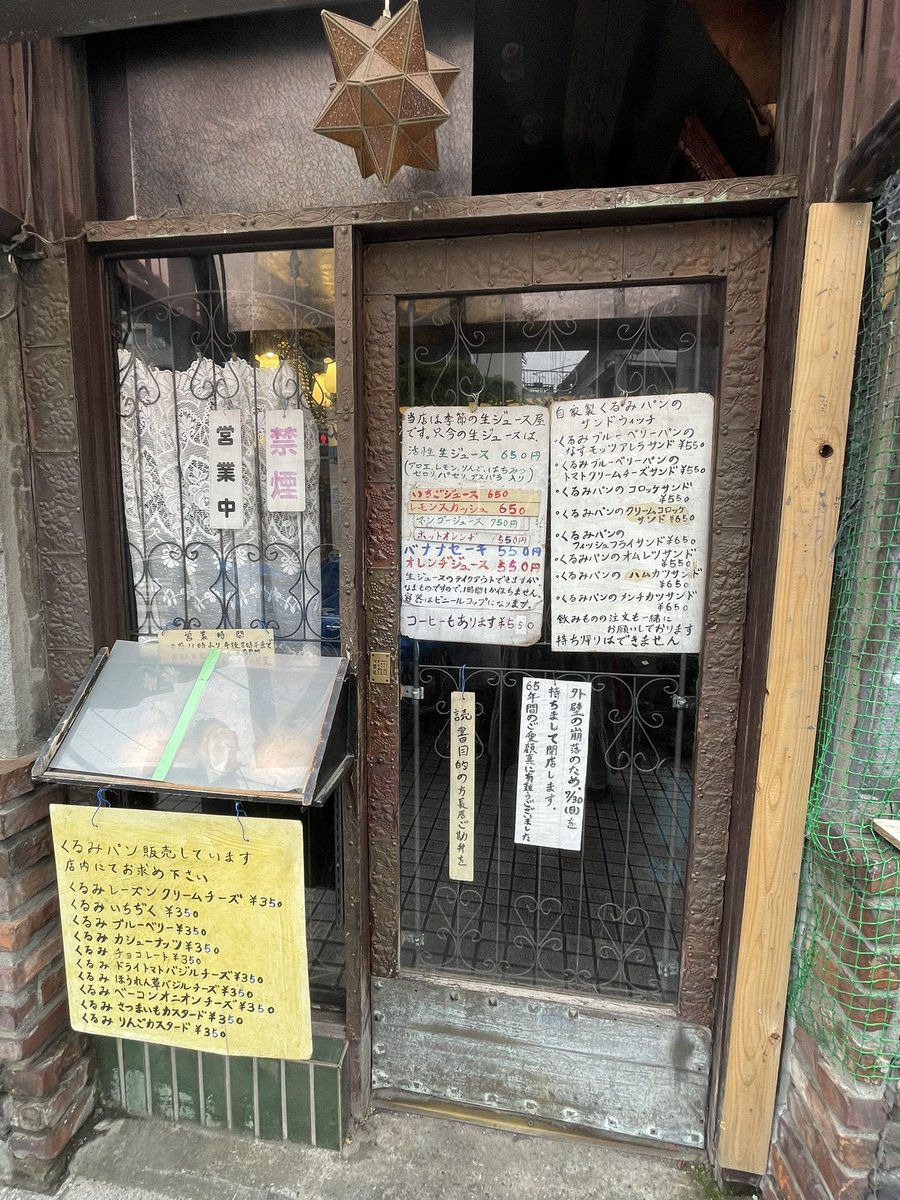 営業中
禁煙
当店は季節の生ジュース屋
です。只今の生ジュースは、
活性生ジュース 650円
(アロエ、レモン、りんご、はちみつ
セロリ、パセリ、アスパラ 入り)
いちごジュース 650
レモンスカッシュ 650
マンゴージュース 750円
ホットオレンヂ 550円
バナナセーキ 550円
オレンヂジュース 550円
生ジュースのテイクアウトできますが
なまものですので、1時間しか保ちません。
容器はビニールコップになります。
コーヒーもあります ¥550
自家製くるみパンの
サンドウィッチ
・くるみブルーベリーパンの
なすモッツアレラサンド ¥550
・くるみブルーベリーパンの
トマトクリームチーズサンド ¥650
・くるみパンの コロッケサンド
¥550
・くるみパンの クリームコロッケ
サンド ¥650
・くるみパンの
フィッシュフライサンド ¥650
・くるみパンの オムレツサンド
¥550
・くるみパンの ハムカツサンド
¥650
・くるみパンの メンチカツサンド
¥650
飲みもの注文も一緒に
お願いしております
持ち帰りはできません
営業時間
読書目的の方長居ご勘弁を
外壁の崩落のため、7/30(日)を
持ちまして閉店します。
65年間のご愛顧真に有難うございました
くるみパン販売しています
店内にてお求め下さい
くるみ レーズンクリームチーズ ¥350
くるみ いちぢく ¥350
くるみ ブルーベリー ¥350
くるみ カシューナッツ ¥350
くるみ チョコレート ¥350
くるみ ドライトマトバジルチーズ ¥350
くるみ ほうれん草バジルチーズ ¥350
くるみ ベーコンオニオンチーズ ¥350
くるみ さつまいもカスタード ¥350
くるみ りんごカスタード ¥350